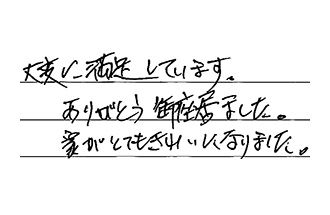 大変に満足しています。
ありがとう御座居ました。
家がとてもきれいになりました。